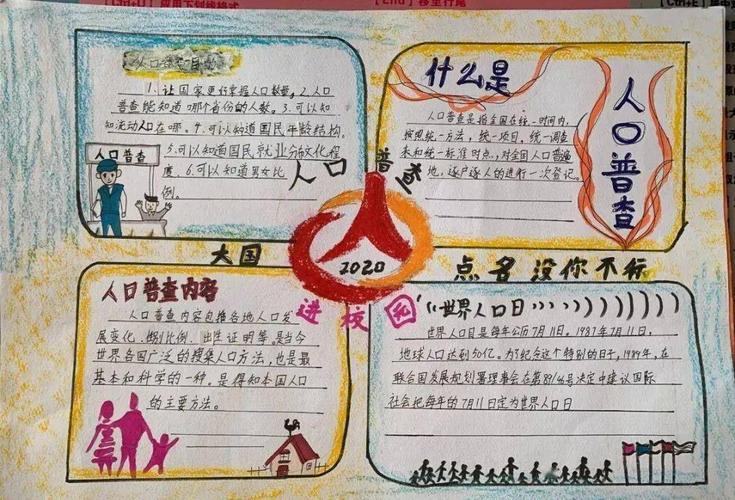 [Ctrl+U] 应用下划线格式
[End] 移至行尾
[Ctrl+E]
人口普查目的
1.让国家更好掌握人口数量。2.人口
普查能知道哪个省份的人数。3.可以知
知流动人口在哪。4.可以知道国民年龄结构。
5.可以知道国民就业分布文化程
度 6.可以知道男女比
例。
人口普查
什么是
人口普查
人口普查是指全国在统一时间内,
按照统一方法,统一项目,统一调查
表和统一标准时点,对全国人口普遍
地,逐户逐人的进行一次登记。
人口普查
2020
进校园
大国
点名没你不行
人口普查内容
人口普查内容包推各地人口发
展变化、性别比例、出生证明等,是当今
世界各国广泛的搜集人口方法,也是最
基本和科学的一种,是得知本国人口
的主要方法。
世界人口日
世界人口日是每年公历7月11日。1987年7月11日,
地球人口达到50亿。为了纪念这个特别的日子,1989年,在
联合国发展规划署理事会在第89/46号决定中建议国际
社会把每年的7月11日定为世界人口日